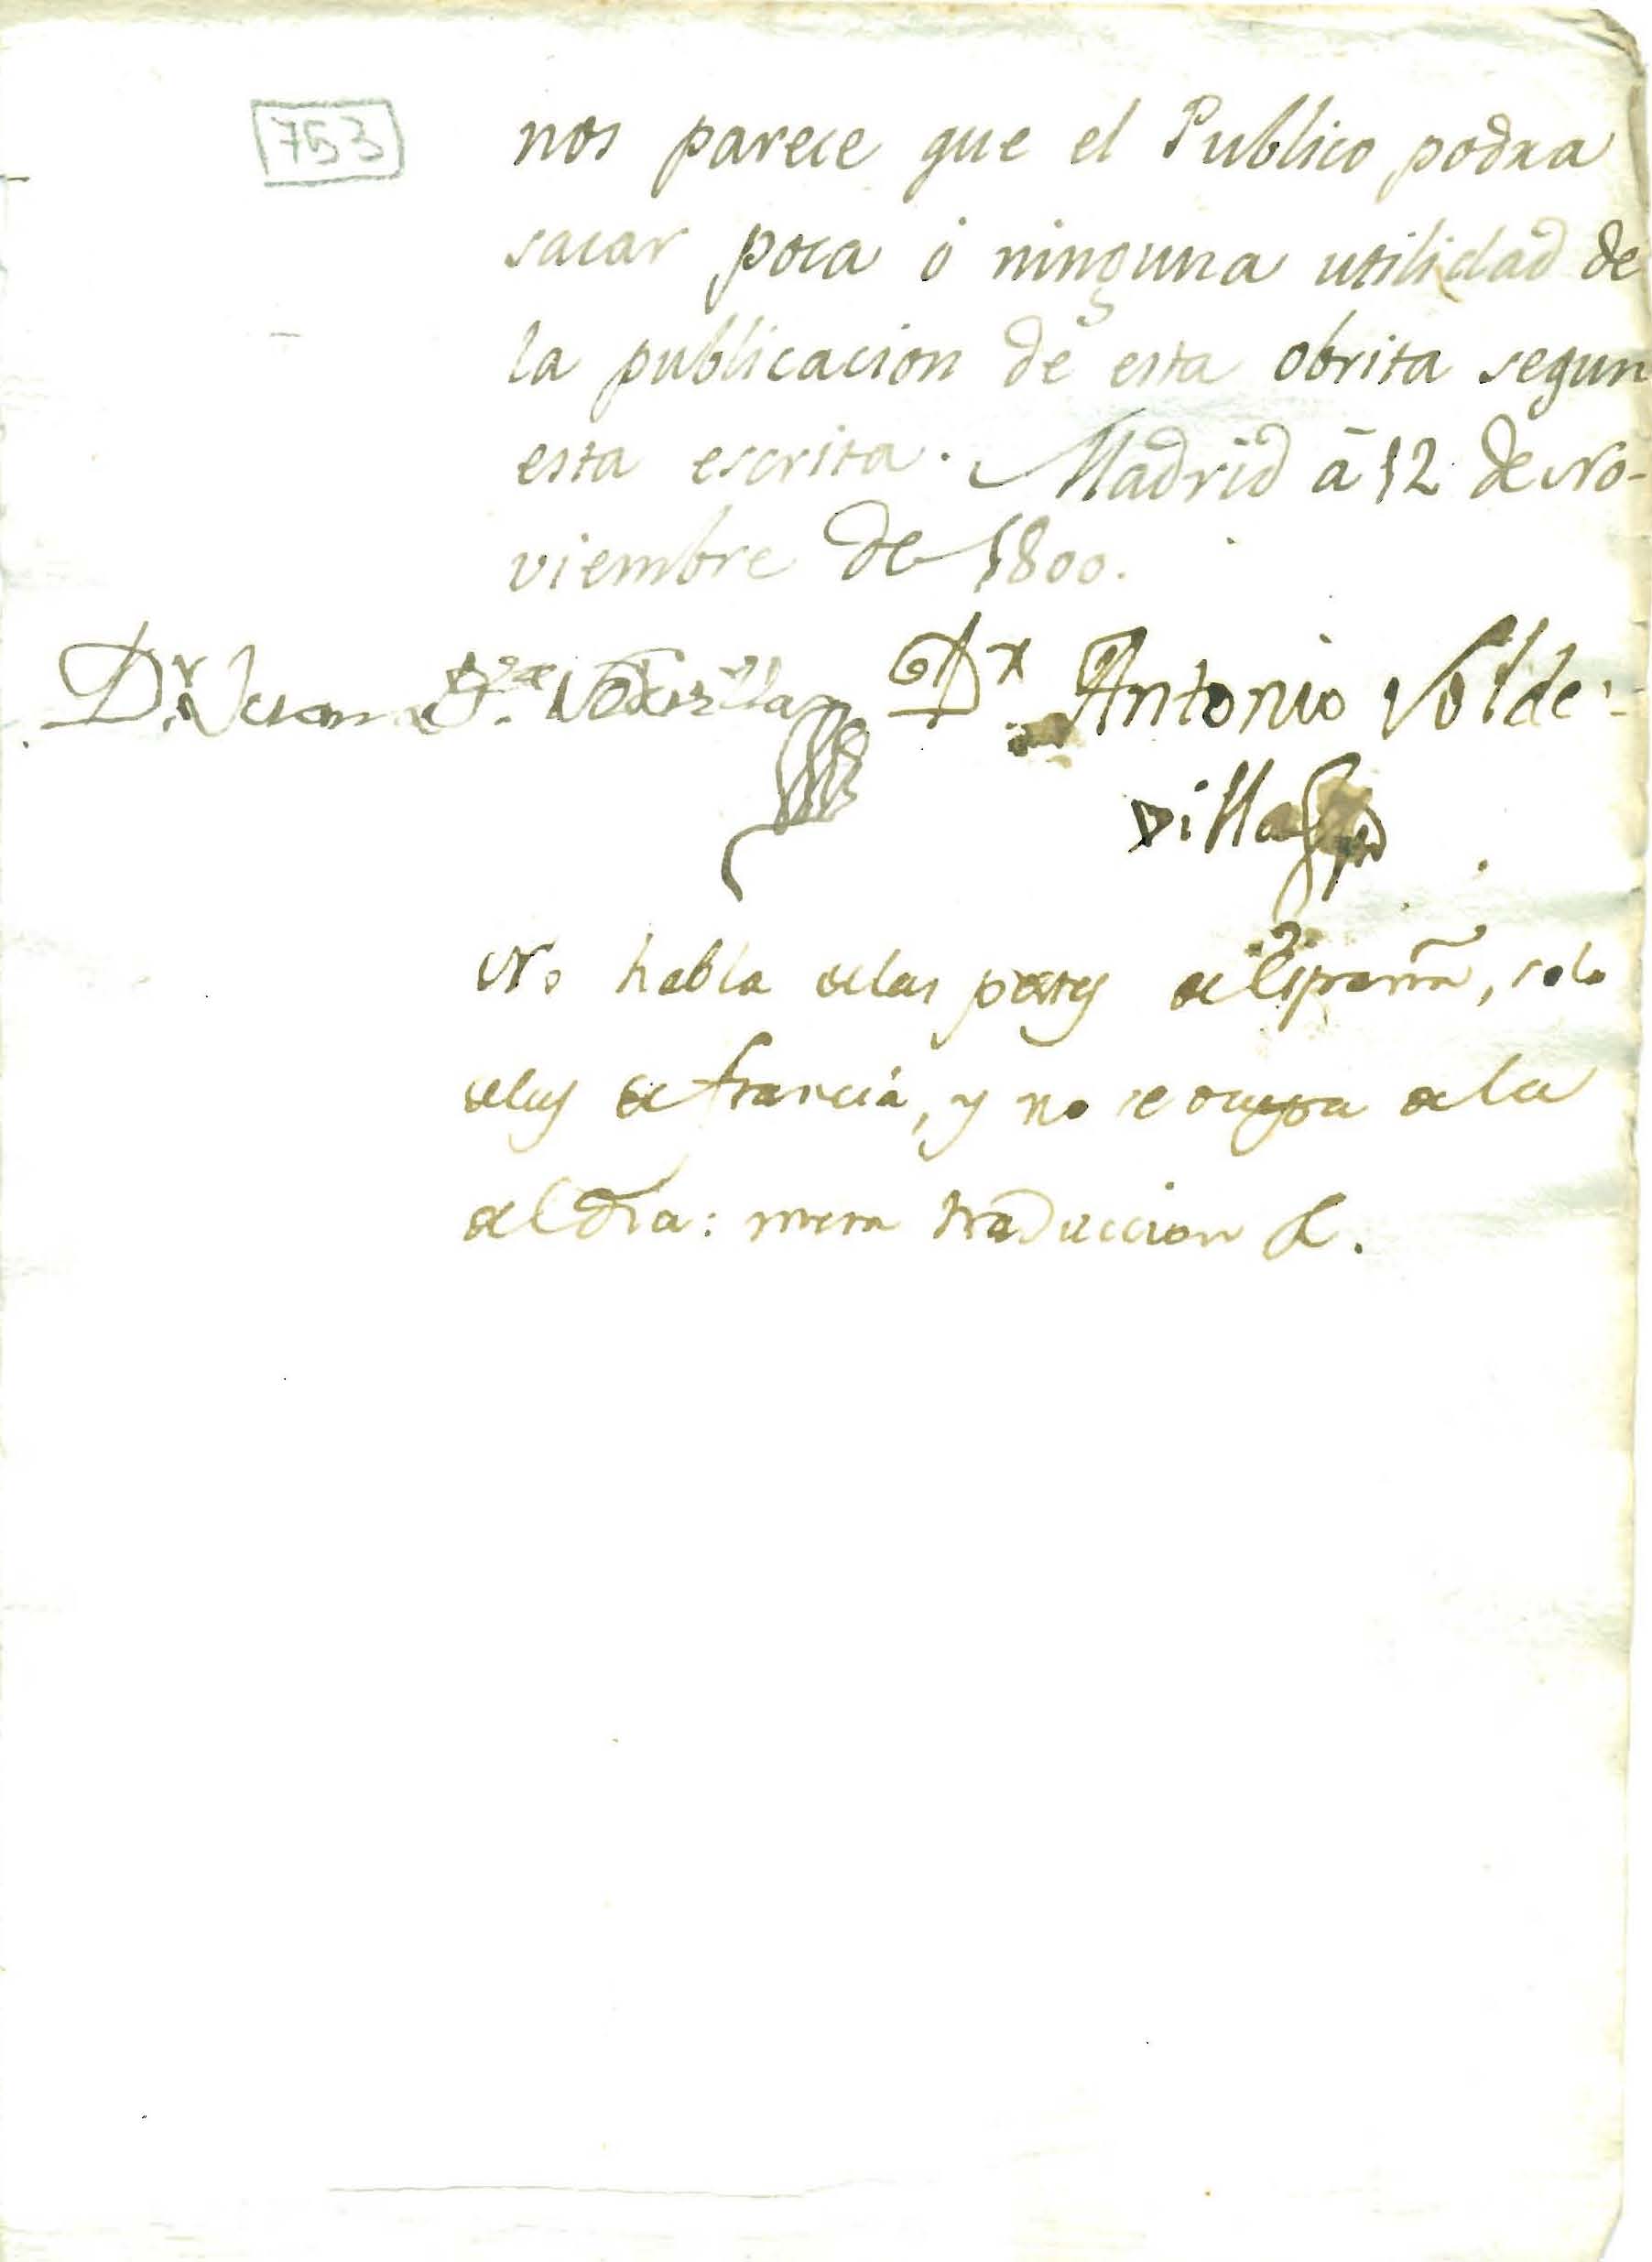 753
nos parece que el Publico podra
sacar poca ó ninguna utilidad de
la publicacion de esta obrita segun
esta escrita. Madrid â 12 de No-
viembre de 1800.
Dr. Juan Dr. Antonio Valde-
villa
No habla de las pestes de España, solo
de las de francia, y no se ocupa de la
del dia: mera traduccion &.